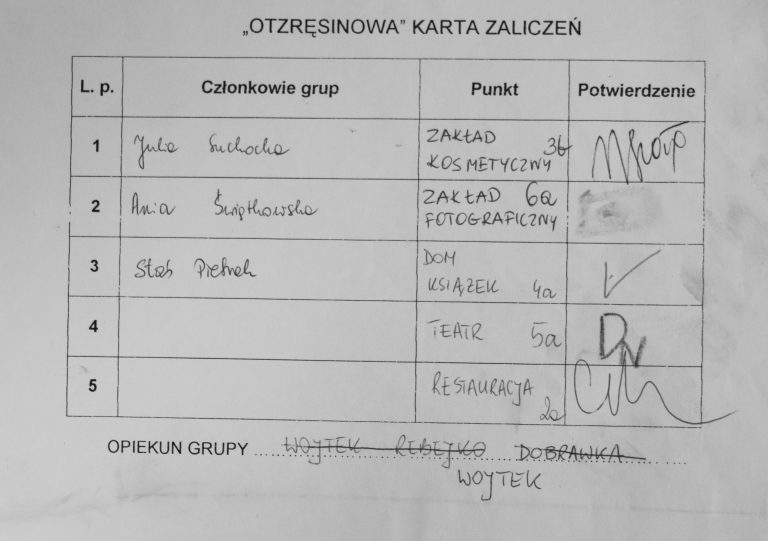 „OTZRĘSINOWA” KARTA ZALICZEŃ
L. p. Członkowie grup Punkt Potwierdzenie
1 Julia Suchocka ZAKŁAD 3b
KOSMETYCZNY
2 Ania Świątkowska ZAKŁAD 6a
FOTOGRAFICZNY
3 Staś DOM
KSIĄŻEK 4a
4 TEATR 5a DN
5 RESTAURACJA
2a
OPIEKUN GRUPY WOJTEK REBEJKO DOBRAWKA
WOJTEK